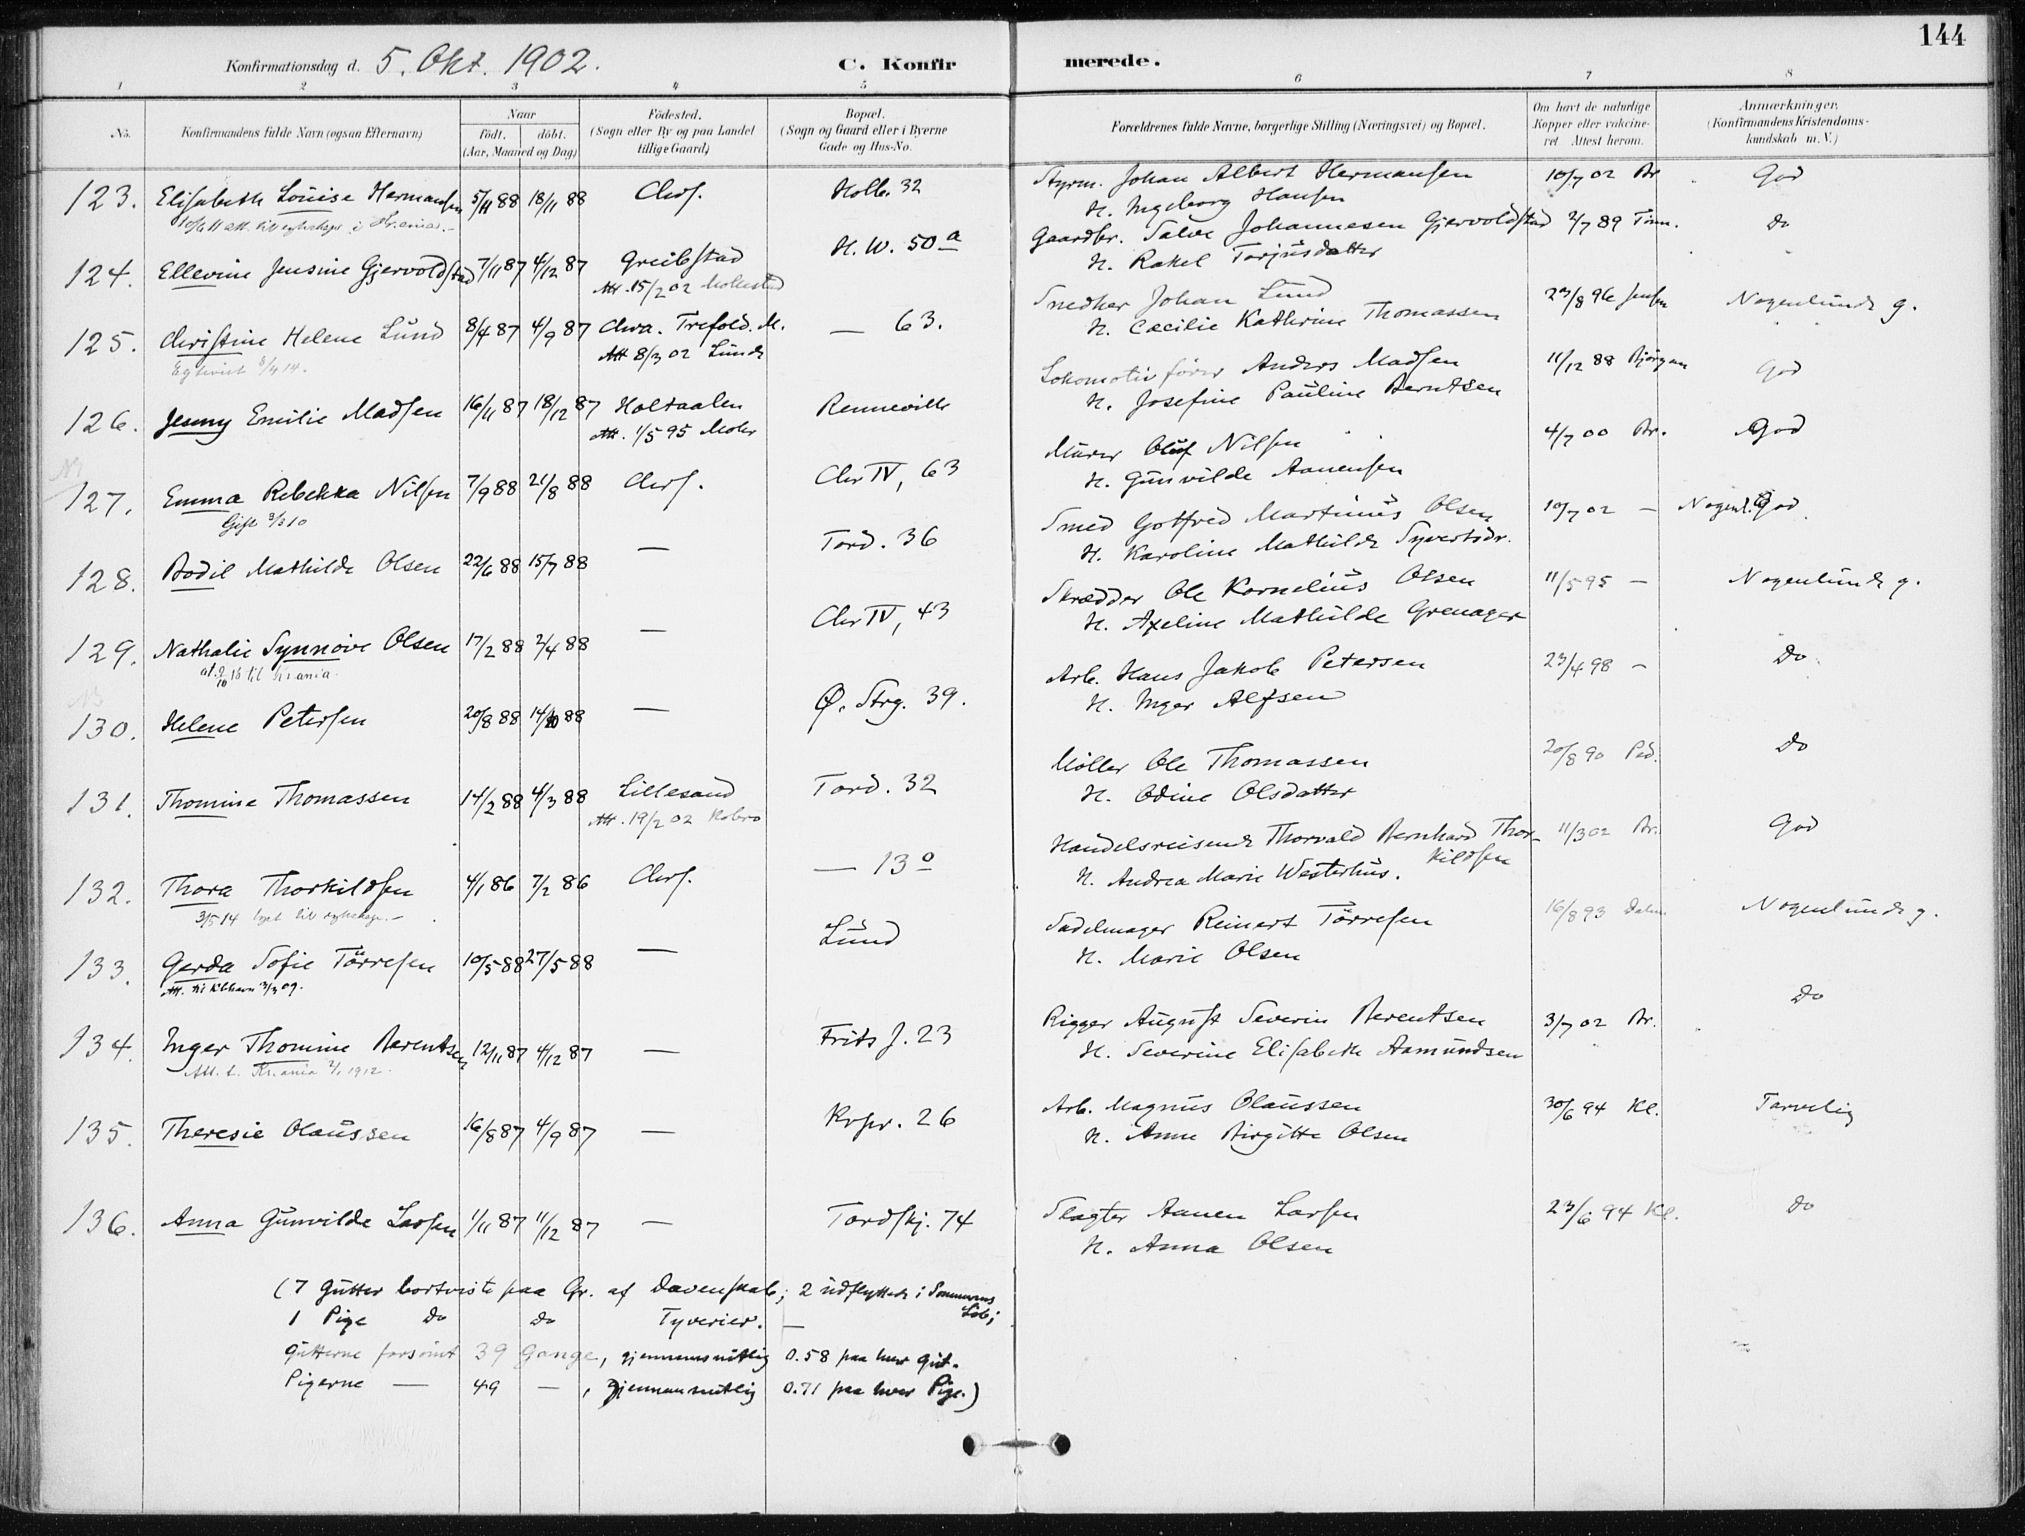 144
Konfirmationsdag d. 5. Okt. 1902.
C. Konfirmerede.
1 2 3 4 5 6 7 8
No.
Konfirmandens fulde Navn (ogsaa Efternavn)
Naar
födt. döbt.
(Aar, Maaned og Dag)
Födested.
(Sogn eller By og paa Landet
tillige Gaard)
Bopæl.
(Sogn og Gaard eller i Byerne
Gade og Hus-No.
Forældrenes fulde Navne, borgerlige Stilling (Næringsvei) og Bopæl.
Om havt de naturlige
Kopper eller vakcine-
ret Attest herom.
Anmærkninger,
(Konfirmandens Kristendoms-
kundskab m. V.)
123. Elisabeth Louise Hermansen 5/11 88 18/11 88 Chrs. Holb. 32 Styrm. Johan Albert Hermansen 10/7 02 Br God
H. Ingeborg Hansen
124. Ellevine Jensine Gjervoldstad 7/11 87 4/12 87 Greibstad H. W. 50 a Gaardbr. Salve Johannesen Gjervoldstad 2/7 89 Tinn. Do
Att. 15/2 02 Molestad H. Rakel Torjusdatter
125. Christine Helene Lund 8/4 87 4/9 87 Chra. Trefold. M. — 63. Snedker Johan Lund 23/8 96 Jensen Nogenlunde g.
Att 8/3 02 Lunde H. Cæcilie Kathrine Thomassen
126. Jenny Emilie Madsen 16/11 87 18/12 87 Holtaalen Renneville Lokomotivfører Anders Madsen 11/12 88 Bjørgan God
Att. 1/5 95 Mohr H. Josefine Pauline Berntsen
127. Emma Rebekka Nilsen 7/9 88 21/8 88 Chrs. Chr IV, 63 Murer Oluf Nilsen 4/7 00 Br. God
Gift 3/3 10 H. Gunvilde Aanensen
128. Bodil Mathilde Olsen 22/6 88 15/7 88 — Tord. 36 Smed Gotfred Martinius Olsen 10/7 02 — Nogenl. God
H. Karoline Mathilde Syvertsdr.
129. Nathalie Synnøve Olsen 17/2 88 2/4 88 — Chr IV, 43 Skrædder Ole Kornelius Olsen 11/5 95 — Nogenlunde g.
H. Axeline Mathilde Grenager
130. Helene Petersen 20/8 88 14/10 88 — Ø. Strg. 39. Arb. Hans Jakob Petersen 23/4 98 — Do
H. Inger Alfsen
131. Thomine Thomassen 14/2 88 4/3 88 Lillesand Tord. 32 Møller Ole Thomassen 20/8 90 Ped. Do
Att. 19/2 02 H. Odine Olsdatter
132. Thora Thorkildsen 4/1 86 7/2 86 Chrs. — 13 o Handelsreisende Thorvald Bernhard Thorkildsen 11/3 02 Br. God
H. Andrea Marie Westerhus.
133. Gerda Sofie Törresen 10/5 88 27/5 88 — Lund Sadelmager Reinert Törresen 16/8 93 Nogenlunde g.
H. Marie Olsen
134. Inger Thomine Berentsen 12/11 87 4/12 87 — Frits J. 23 Rigger August Severin Berentsen 3/7 02 Br. Do
Att. t. Kr.ania 2/1 1912. H. Severine Elisabeth Aamundsen
135. Theresie Olaussen 16/8 87 4/9 87 — Krpr. 26 Arb. Magnus Olaussen 30/6 94 Kl. Tarvelig
H. Anne Birgitte Olsen
136. Anna Gunvilde Larsen 1/11 87 11/12 87 — Tordskj. 74 Slagter Aanen Larsen 23/6 94 Kl. Do
H. Anna Olsen
(7 Gutter bortviste paa Gr. af Dovenskab; 2 udflyttede i Sommerens Løb;
1 Pige Do Do Tyverier. —
Gutterne forsømt 39 Gange, gjennemsnitlig 0.58 paa hver Gut.
Pigerne — 49 — , gjennemsnitlig 0.71 paa hver Pige.)